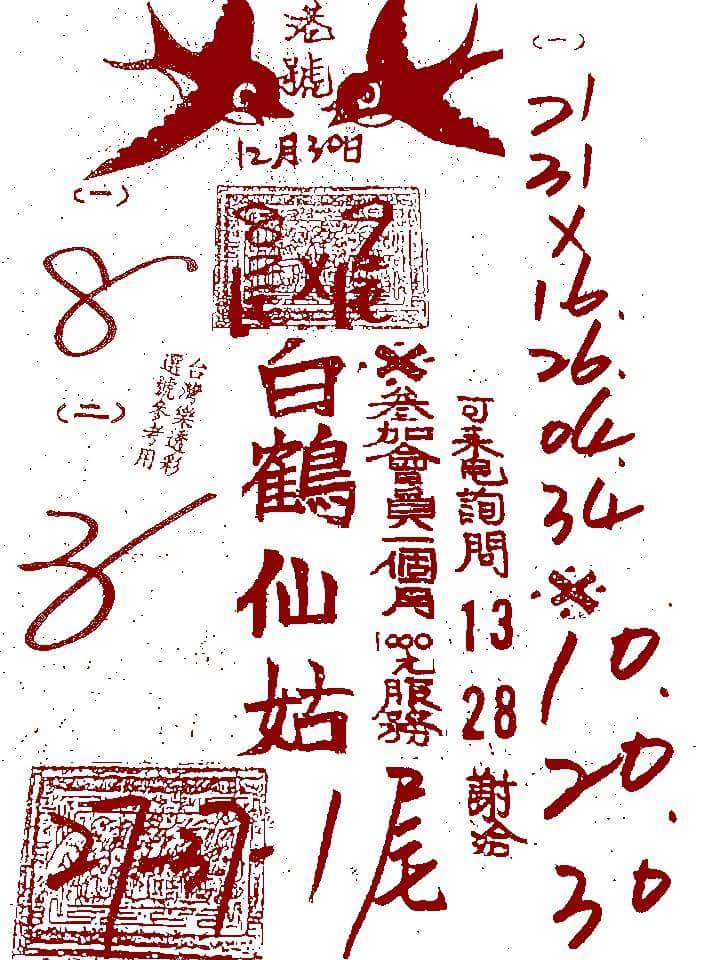 港號
12月30日
(一)
21
31
×
16.
26.
04.
34
※
10.
20.
30
可来电詢問
13
28
謝洽
※叅加會員一個月1000元服務
白鶴仙姑
8尾×9尾
(一)
8
台灣樂透彩
選號參考用
(二)
3
27-37-1尾